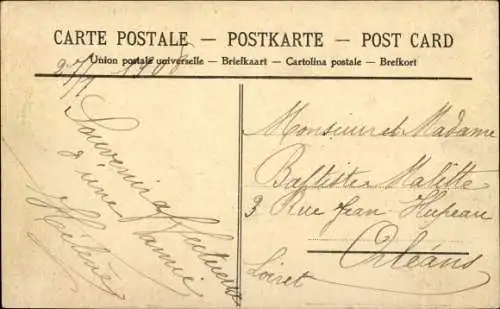 CARTE POSTALE — POSTKARTE — POST CARD
Union postale universelle — Briefkaart — Cartolina postale — Brefkort
Souvenir
d'une
amie
Hélène
Monsieur et Madame
Baptiste Malitte
3 Rue Jean Hupeau
Orléans
Loiret